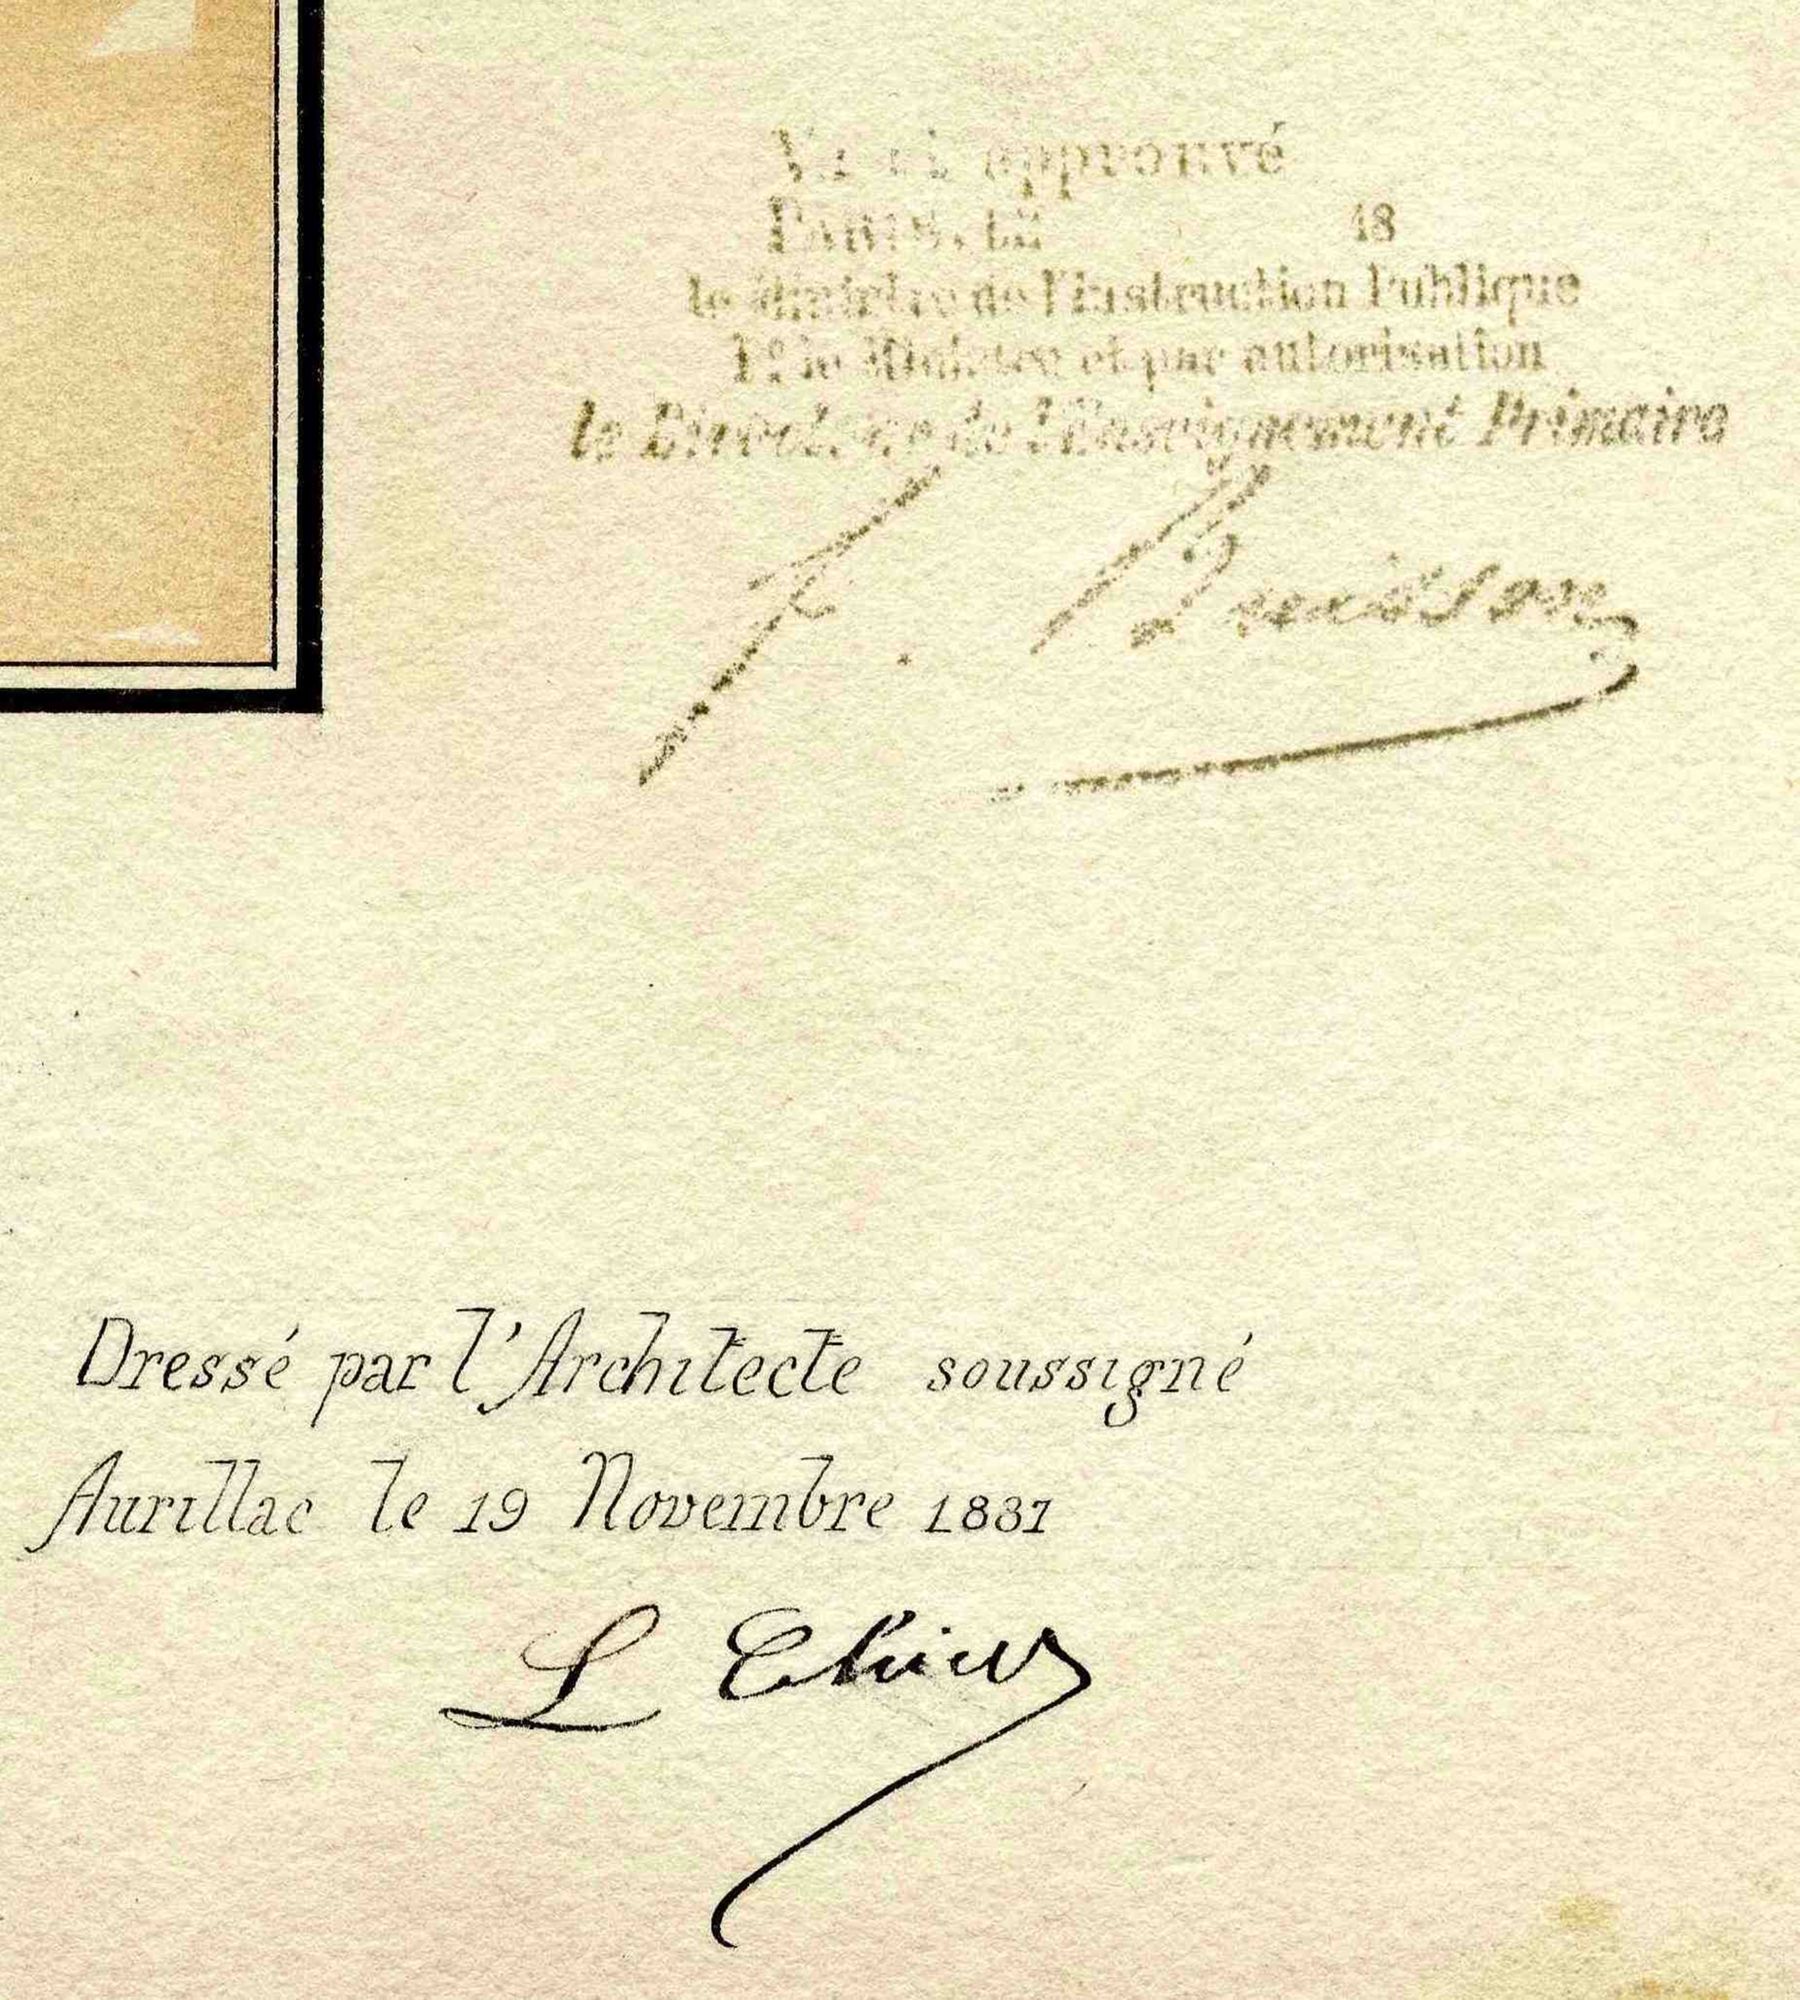 Vu et approuvé
Paris, le 18
le Ministre de l'instruction Publique
Pr le Ministre et par autorisation
le Directeur de l'Enseignement Primaire
F. Buisson
Dressé par l'Architecte soussigné
Aurillac le 19 Novembre 1881
L